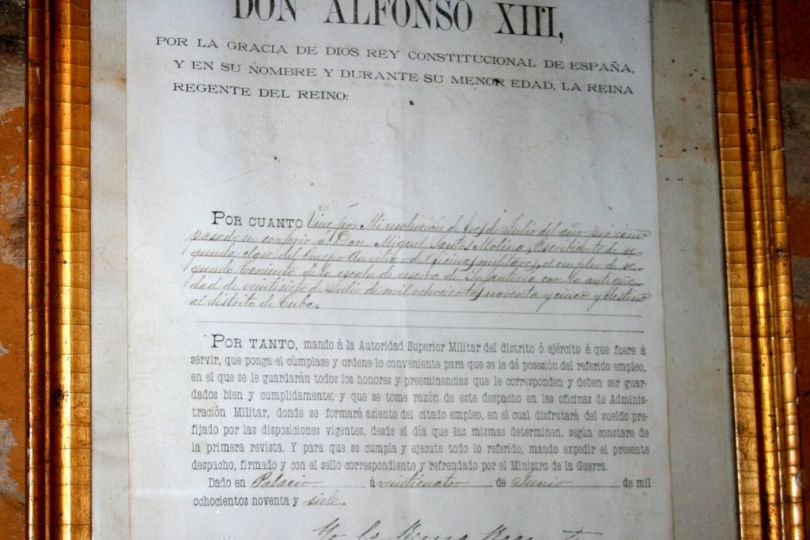 DON ALFONSO XIII,
POR LA GRACIA DE DIOS REY CONSTITUCIONAL DE ESPAÑA,
Y EN SU NOMBRE Y DURANTE SU MENOR EDAD, LA REINA
REGENTE DEL REINO:
POR CUANTO Vine por Mi resolución de de Julio del año
pasado en conferir á Don Miguel Santos Molina, Escribiente de se-
gunda clase del Cuerpo Auxiliar de Oficinas militares, el empleo de se-
gundo Teniente de la escala de reserva de Infantería con la antigüe-
dad de veintisiete de Julio de mil ochocientos noventa y cinco y destino
al distrito de Cuba.
POR TANTO, mando á la Autoridad Superior Militar del distrito ó ejército á que fuere á
servir, que ponga el cúmplase y ordene lo conveniente para que se le dé posesión del referido empleo,
en el que se le guardarán todos los honores y preeminencias que le corresponden y deben ser guar-
dados bien y cumplidamente; y que se tome razón de este despacho en las oficinas de Adminis-
tración Militar, donde se formará asiento del citado empleo, en el cual disfrutará del sueldo pre-
fijado por las disposiciones vigentes, desde el día que las mismas determinen, según constare de
la primera revista. Y para que se cumpla y ejecute todo lo referido, mando expedir el presente
despacho, firmado y con el sello correspondiente y refrendado por el Ministro de la Guerra.
Dado en Palacio á veinticuatro de Junio de mil
ochocientos noventa y siete.
Yo la Reina Regente